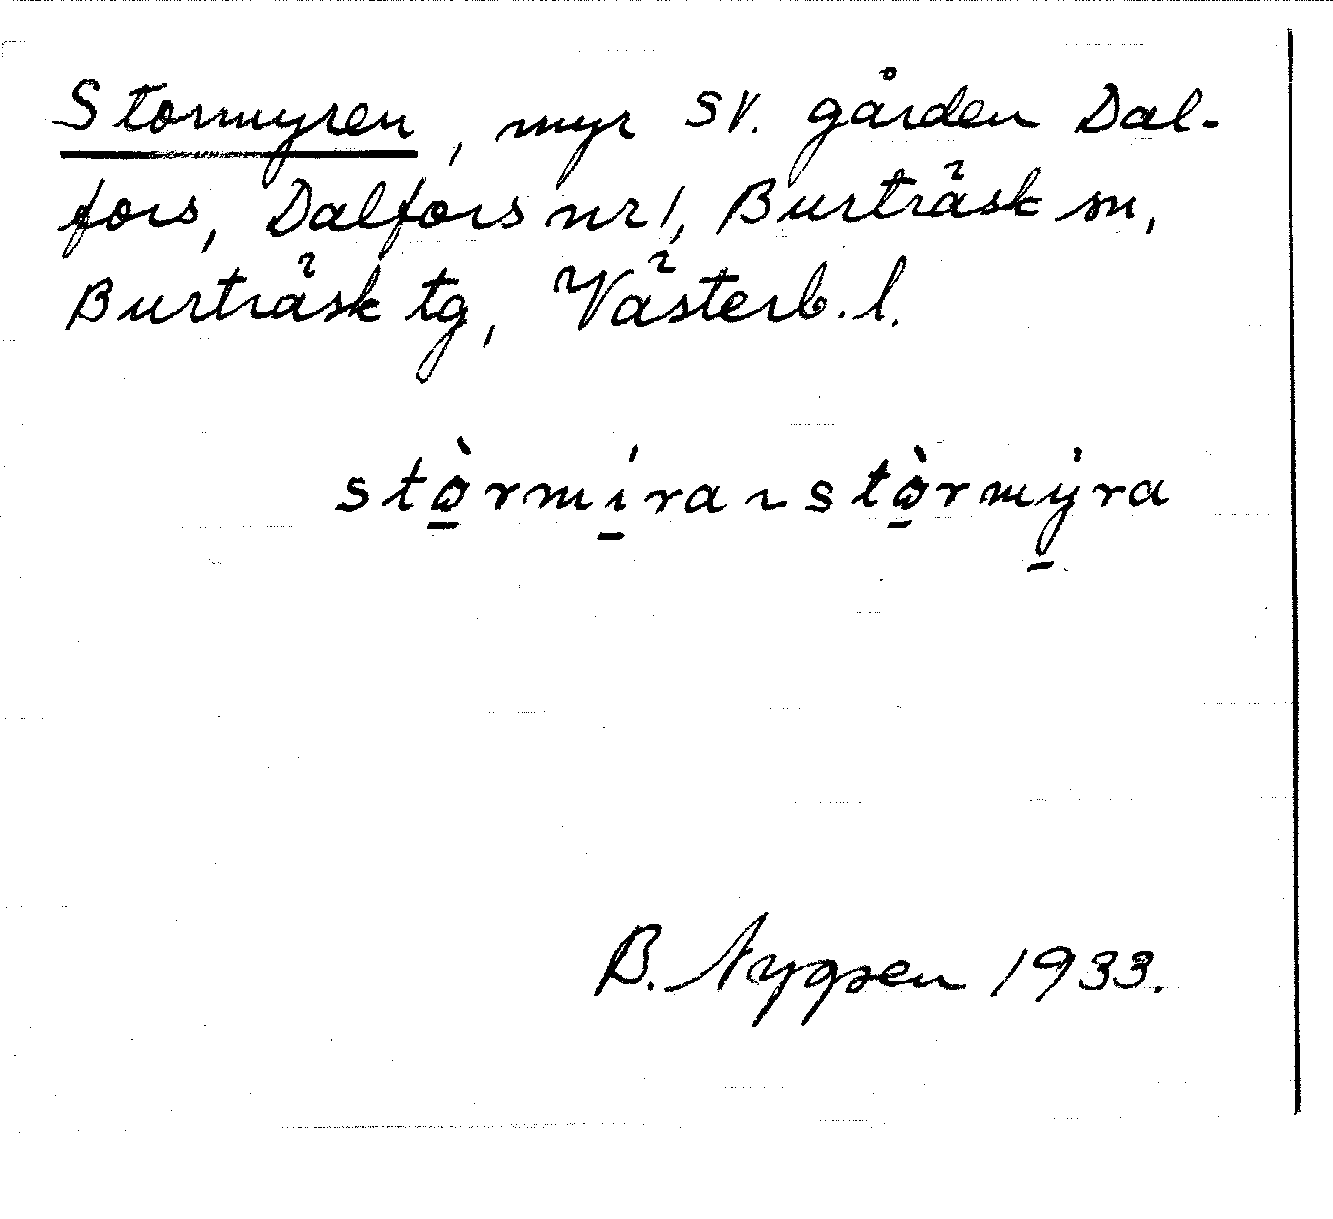 Stormyren, myr SV. gården Dal-
fors, Dalfors nr 1, Burträsk sn,
Burträsk tg, Västerb. l.
stò̱rmí̱ra ~ stò̱rmý̱ra
B. Nygren 1933.